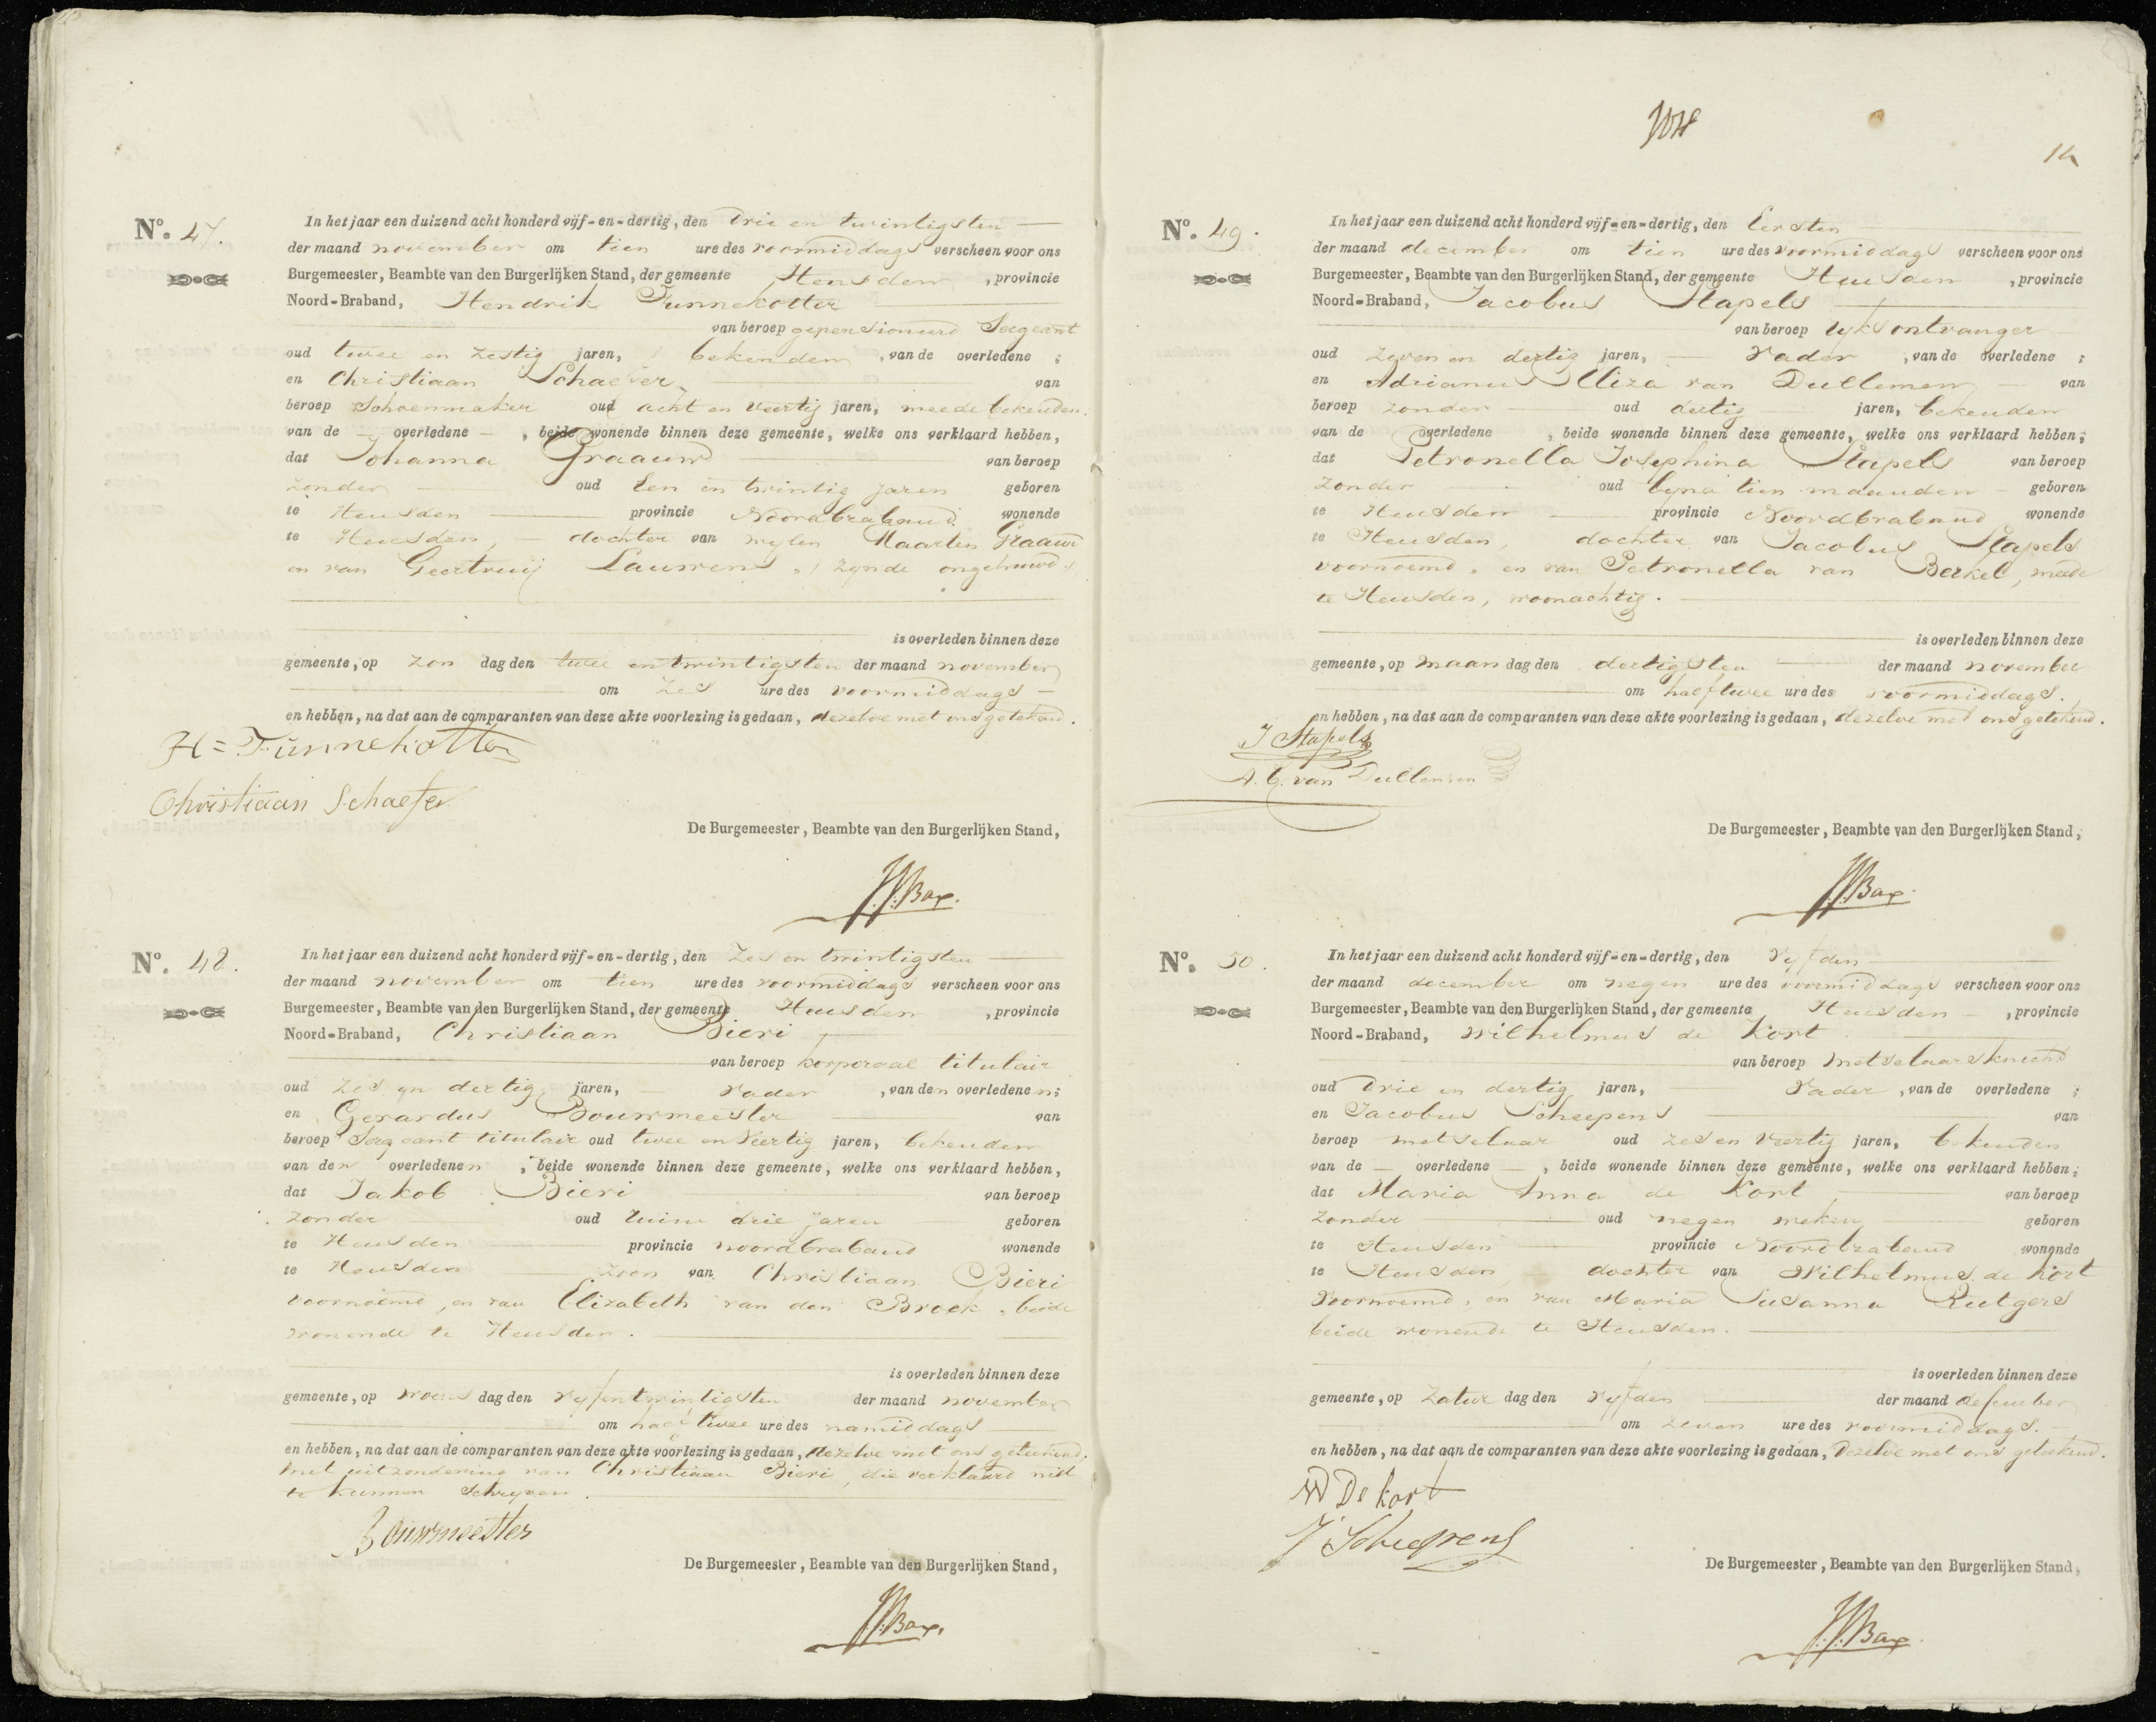 No. 47. In het jaar een duizend acht honderd vijf-en-dertig, den drie en twintigsten
der maand november om tien ure des voormiddags verscheen voor ons
Burgemeester, Beambte van den Burgerlijken Stand, der gemeente Heusden, provincie
Noord-Braband, Hendrik Funnekotter
van beroep gepensioneerd Sergeant
oud twee en zestig jaren, bekenden, van de overledene ;
en Christiaan Schaefer van
beroep Schoenmaker oud acht en veertig jaren, meede bekenden
van de overledene, beide wonende binnen deze gemeente, welke ons verklaard hebben,
dat Johanna Graauw van beroep
zonder oud Een en twintig jaren geboren
te Heusden provincie Noordbraband wonende
te Heusden, dochter van wylen Maarten Graauw
en van Geertruij Lauwens, zynde ongehuwd.
is overleden binnen deze
gemeente, op zon dag den twee en twintigsten der maand november
om zes ure des voormiddags
en hebben, na dat aan de comparanten van deze akte voorlezing is gedaan, dezelve met ons getekend.
H= Funnekotter
Christiaan Schaefer
De Burgemeester, Beambte van den Burgerlijken Stand,
J.J. Bax.
No. 48. In het jaar een duizend acht honderd vijf-en-dertig, den Zes en twintigsten
der maand november om tien ure des voormiddags verscheen voor ons
Burgemeester, Beambte van den Burgerlijken Stand, der gemeente Heusden, provincie
Noord-Braband, Christiaan Bieri
van beroep korporaal titulair
oud zes en dertig jaren, vader, van den overledenen;
en Gerardus Bouwmeester van
beroep Sergeant titulair oud twee en veertig jaren, bekenden
van den overledenen, beide wonende binnen deze gemeente, welke ons verklaard hebben,
dat Jakob Bieri van beroep
zonder oud ruim drie jaren geboren
te Heusden provincie noordbraband wonende
te Heusden zoon van Christiaan Bieri
voornoemd, en van Elizabeth van den Broek, beide
wonende te Heusden.
is overleden binnen deze
gemeente, op woens dag den vyfentwintigsten der maand november
om half twee ure des namiddags
en hebben, na dat aan de comparanten van deze akte voorlezing is gedaan, dezelve met ons getekend,
met uitzondering van Christiaan Bieri, die verklaard niet
te kunnen Schryven.
Bouwmeester
De Burgemeester, Beambte van den Burgerlijken Stand,
J.J. Bax.
14
No. 49. In het jaar een duizend acht honderd vijf-en-dertig, den Eersten
der maand december om tien ure des voormiddags verscheen voor ons
Burgemeester, Beambte van den Burgerlijken Stand, der gemeente Heusden, provincie
Noord-Braband, Jacobus Stapels
van beroep ryks ontvanger
oud zeven en dertig jaren, vader, van de overledene ;
en Adrianus Eliza van Dullemen van
beroep zonder oud dertig jaren, bekenden
van de overledene, beide wonende binnen deze gemeente, welke ons verklaard hebben,
dat Petronella Josephina Stapels van beroep
zonder oud byna tien maanden geboren
te Heusden provincie Noordbraband wonende
te Heusden, dochter van Jacobus Stapels
voornoemd, en van Petronella van Berkel, meede
te Heusden, woonachtig.
is overleden binnen deze
gemeente, op maan dag den dertigsten der maand november
om half twee ure des voormiddags.
en hebben, na dat aan de comparanten van deze akte voorlezing is gedaan, dezelve med ons getekend.
J Stapels
A. E. van Dullemen
De Burgemeester, Beambte van den Burgerlijken Stand,
J.J. Bax.
No. 50. In het jaar een duizend acht honderd vijf-en-dertig, den vyfden
der maand december om negen ure des voormiddags verscheen voor ons
Burgemeester, Beambte van den Burgerlijken Stand, der gemeente Heusden, provincie
Noord-Braband, Wilhelmus de Kort
van beroep metselaarsknecht
oud drie en dertig jaren, vader, van de overledene ;
en Jacobus Scheepens van
beroep metselaar oud zes en veertig jaren, bekenden
van de overledene, beide wonende binnen deze gemeente, welke ons verklaard hebben,
dat Maria Anna de Kort van beroep
zonder oud negen weken geboren
te Heusden provincie Noordbraband wonende
te Heusden dochter van Wilhelmus de Kort
voornoemd, en van Maria Susanna Rutgers
beide wonende te Heusden.
is overleden binnen deze
gemeente, op Zatur dag den vyfden der maand desember
om zeven ure des voormiddags.
en hebben, na dat aan de comparanten van deze akte voorlezing is gedaan, dezelve met ons getekend.
W De kort
J Scheepens
De Burgemeester, Beambte van den Burgerlijken Stand,
J.J. Bax.